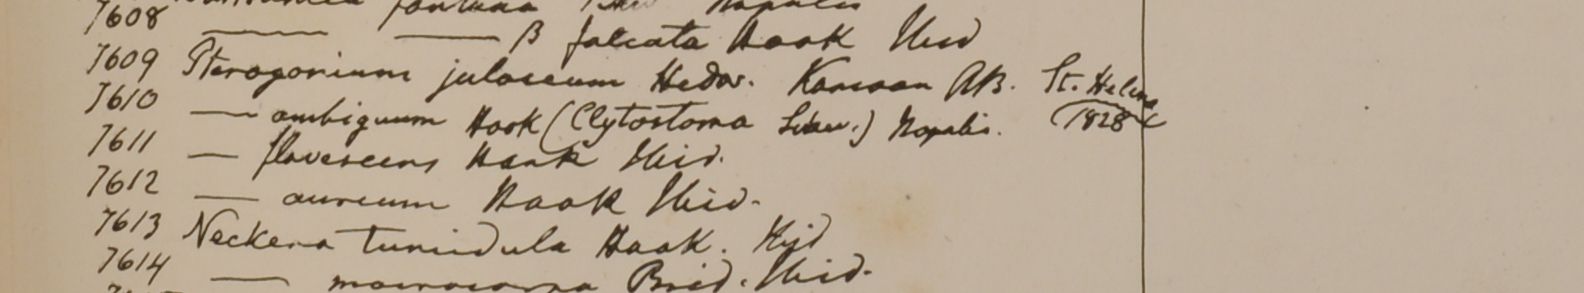 7608 fontana Napalis
——— ——— β falcata Hook Ibid
7609 Pterogonium julaceum Hedw. Kamaon RB. St. Helena
7610 — ambiguum Hook (Clytostoma Schw.) Napalis. (1828
7611 — flavescens Hook Ibid.
7612 — aureum Hook Ibid.
7613 Neckera tumidula Hook. Ibid
7614 — macrocarpa Brid. Ibid.